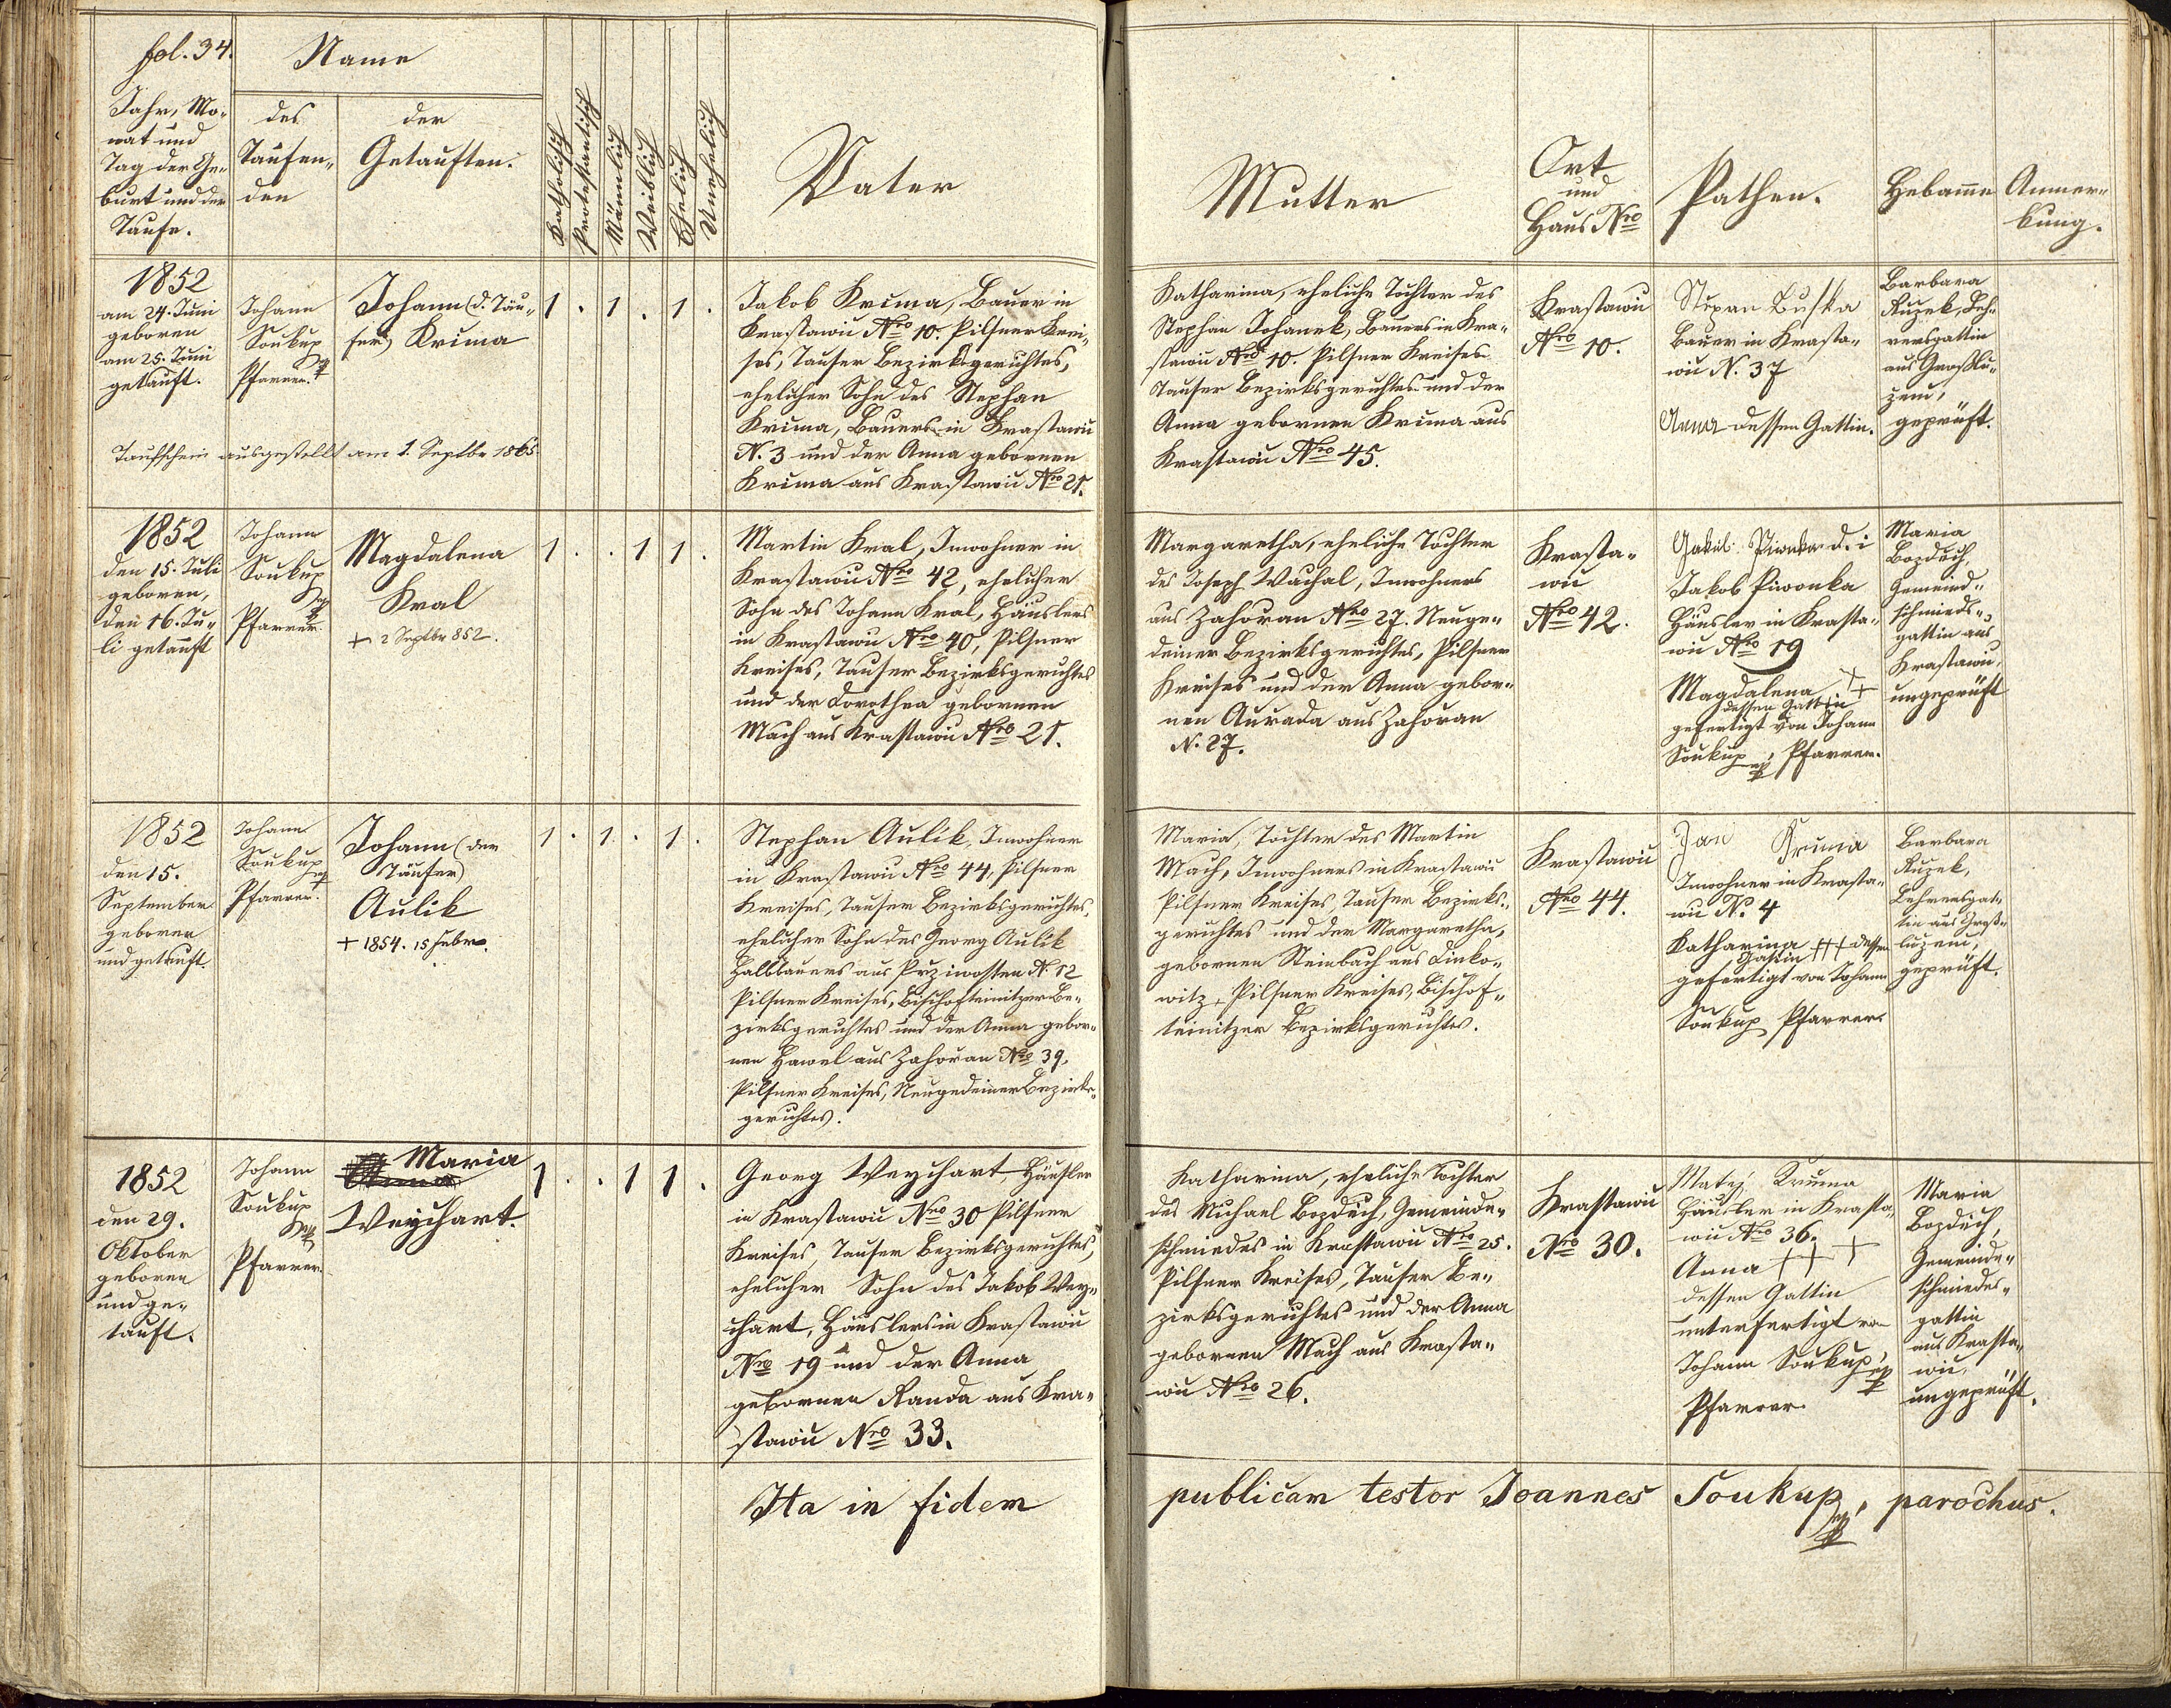 fol. 34.
Name
Jahr, Mo-
nat und
Tag der Ge-
burt und der
Taufe.
des
Taufen-
den
der
Getauften.
Katholisch
Protestantisch
Männlich
Weiblich
Ehelich
Unehelich
Vater
Mutter
Ort
und
Haus Nro
Pathen.
Hebamme
Anmer-
kung.
1852
am 24. Juni
geboren
am 25. Juni
getauft.
Johann
Soukup
Pfarrer.
Johann (d. Täu-
fer) Krima
Taufschein ausgestellt am 1. Septbr 1865
1 . 1 . 1 .
Jakob Krima, Bauer in
Krastawiu Nro 10. Pilsner Krei-
ses, Tauser Bezirksgerichtes,
ehelicher Sohn des Stephan
Krima, Bauers in Krastawiu
N. 3 und der Anna gebornen
Krima aus Krastawiu Nro 21.
Katharina, eheliche Tochter des
Stephan Johanek, Bauers in Kra-
stawiu Nro 10. Pilsner Kreises
Tauser Bezirksgerichtes und der
Anna gebornen Krima aus
Krastawiu Nro 45.
Krastawiu
Nro 10.
Bauer in Krasta-
wiu N. 37
Anna dessen Gattin.
Barbara
Ruzek, Leh-
rersgattin
aus Großlu-
zeni,
geprüft.
1852
den 15. Juli
geboren,
den 16. Ju-
li getauft
Johann
Soukup
Pfarrer.
Magdalena
Kral
+ 2 Septbr 852.
1 . . 1 1 .
Martin Kral, Inwohner in
Krastawiu Nro 42, ehelicher
Sohn des Johann Kral, Häuslers
in Krastawiu Nro 40, Pilsner
Kreises, Tauser Bezirksgerichtes
und der Dorothea gebornen
Mach aus Krastawiu Nro 21.
Margaretha, eheliche Tochter
des Joseph Wachal, Inwohners
aus Zahoran Nro 27. Neuge-
deiner Bezirksgerichtes, Pilsner
Kreises und der Anna gebor-
nen Aurada aus Zahoran
N. 27.
Krasta-
wiu
Nro 42.
d. i
Jakob Piwonka
Häusler in Krasta-
wiu Nro 19
Magdalena +++
dessen Gattin
gefertigt von Johann
Soukup, Pfarrer.
Maria
Bozdech,
Gemeind-
schmieds-
gattin aus
Krastawiu,
ungeprüft
1852
den 15.
September
geboren
und getauft.
Johann
Soukup
Pfarrer.
Johann (der
Täufer)
Aulik
+ 1854. 15 Febr.
1 . 1 . 1 .
Stephan Aulik, Inwohner
in Krastawiu Nro 44, Pilsner
Kreises, Tauser Bezirksgerichtes,
ehelicher Sohn des Georg Aulik
Halbbauers aus Prziwosten N. 12
Pilsner Kreises, Bischofteinitzer Be-
zirksgerichtes und der Anna gebor-
nen Hawel aus Zahoran Nro 39,
Pilsner Kreises, Neugedeiner Bezirks-
gerichtes.
Maria, Tochter des Martin
Mach, Inwohners in Krastawiu
Pilsner Kreises, Tauser Bezirks-
gerichtes und der Margaretha,
gebornen Steinbach aus Linko-
witz, Pilsner Kreises, Bischof-
teinitzer Bezirksgerichtes.
Krastawiu
Nro 44.
Jan Krima
Inwohner in Krasta-
wiu N. 4
Katharina +++ dessen
Gattin
gefertigt von Johann
Soukup Pfarrer.
Barbara
Ruzek,
Lehrersgat-
tin aus Groß-
luzeni,
geprüft.
1852
den 29.
Oktober
geboren
und ge-
tauft.
Johann
Soukup
Pfarrer.
Maria
Weychart.
1 . . 1 1 .
Georg Weychart, Häusler
in Krastawiu Nro 30 Pilsner
Kreises, Tauser Bezirksgerichtes,
ehelicher Sohn des Jakob Wey-
chart, Häuslers in Krastawiu
Nro 19 und der Anna
gebornen Randa aus Kra-
stawiu Nro 33.
Katharina, eheliche Tochter
des Michael Bozdech, Gemeinde-
schmiedes in Krastawiu Nro 25.
Pilsner Kreises, Tauser Be-
zirksgerichtes und der Anna
gebornen Mach aus Krasta-
wiu Nro 26.
Krastawiu
Nro 30.
Matej Kruma
Häusler in Krasta-
wiu Nro 36.
Anna +++
dessen Gattin
unterfertigt von
Johann Soukup,
Pfarrer.
Maria
Bozdech,
Gemeinde-
schmiedes-
gattin
aus Krasta-
wiu,
ungeprüft.
Ita in fidem publicam testor Joannes Soukup, parochus.